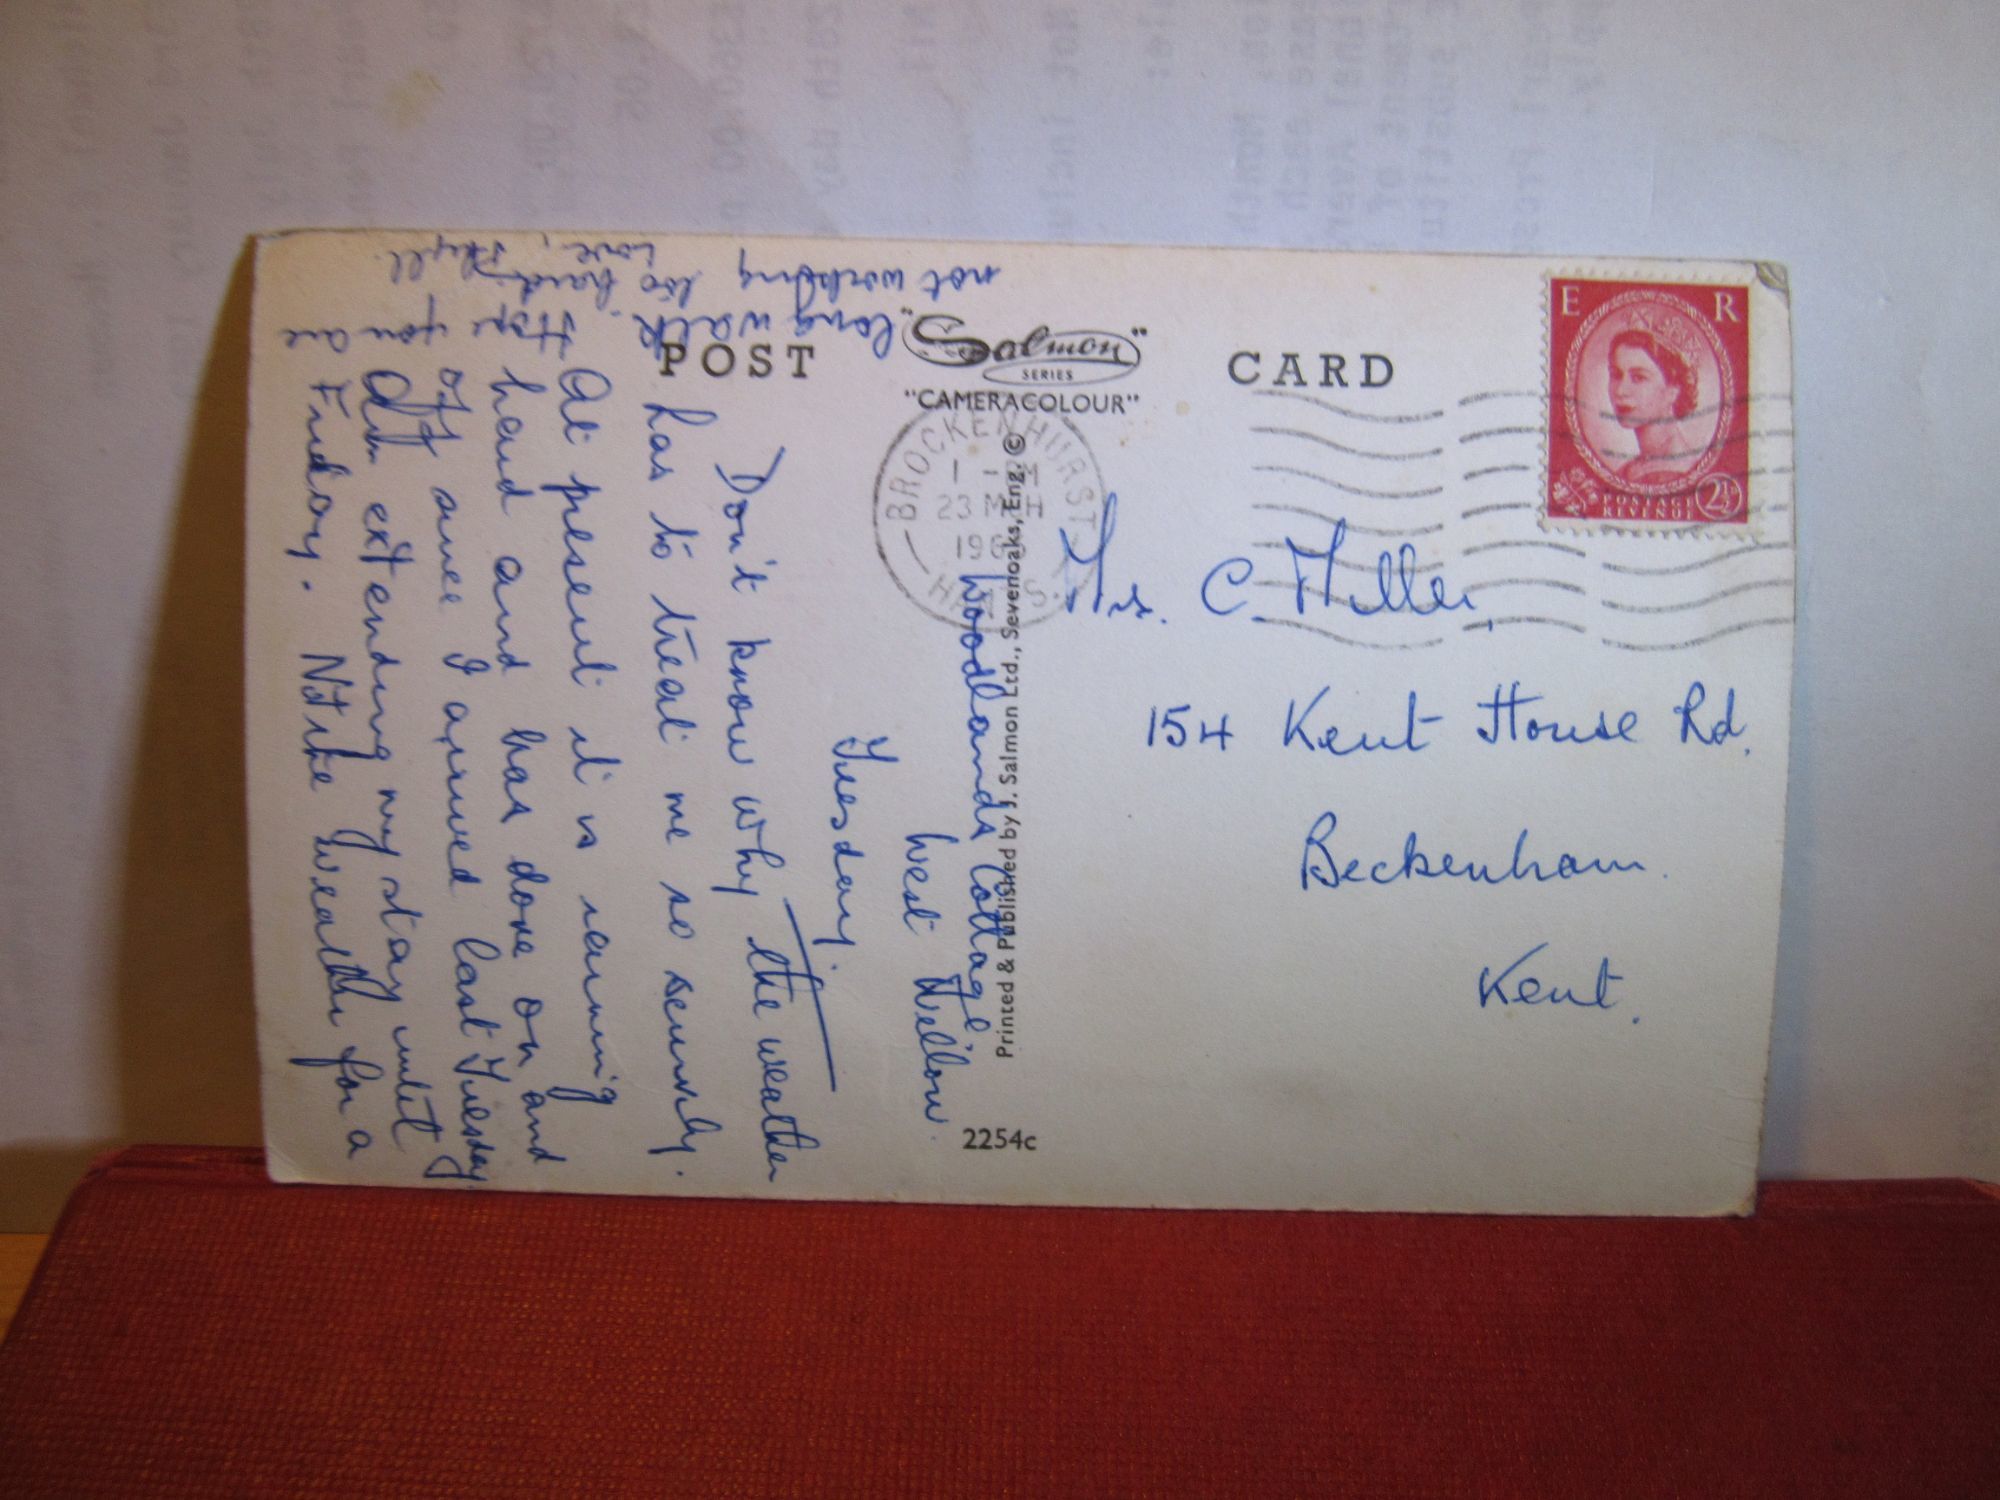 POST
"Salmon"
SERIES
"CAMERACOLOUR"
CARD
E R
POSTAGE
REVENUE
2½
BROCKENHURST
23 MCH
HANTS.
Printed & Published by J. Salmon Ltd., Sevenoaks, Eng. ©
2254c
Mrs. C. Miller,
154 Kent House Rd.
Beckenham.
Kent.
Woodlands Cottage
West Wellow.
Tuesday.
Don't know why the weather
has to treat me so severely.
At present it is raining
hard and has done on and
off since I arrived last Tuesday.
Am extending my stay until
Friday. Not the weather for a
long walk. Hope you are
not working too hard.
Love,